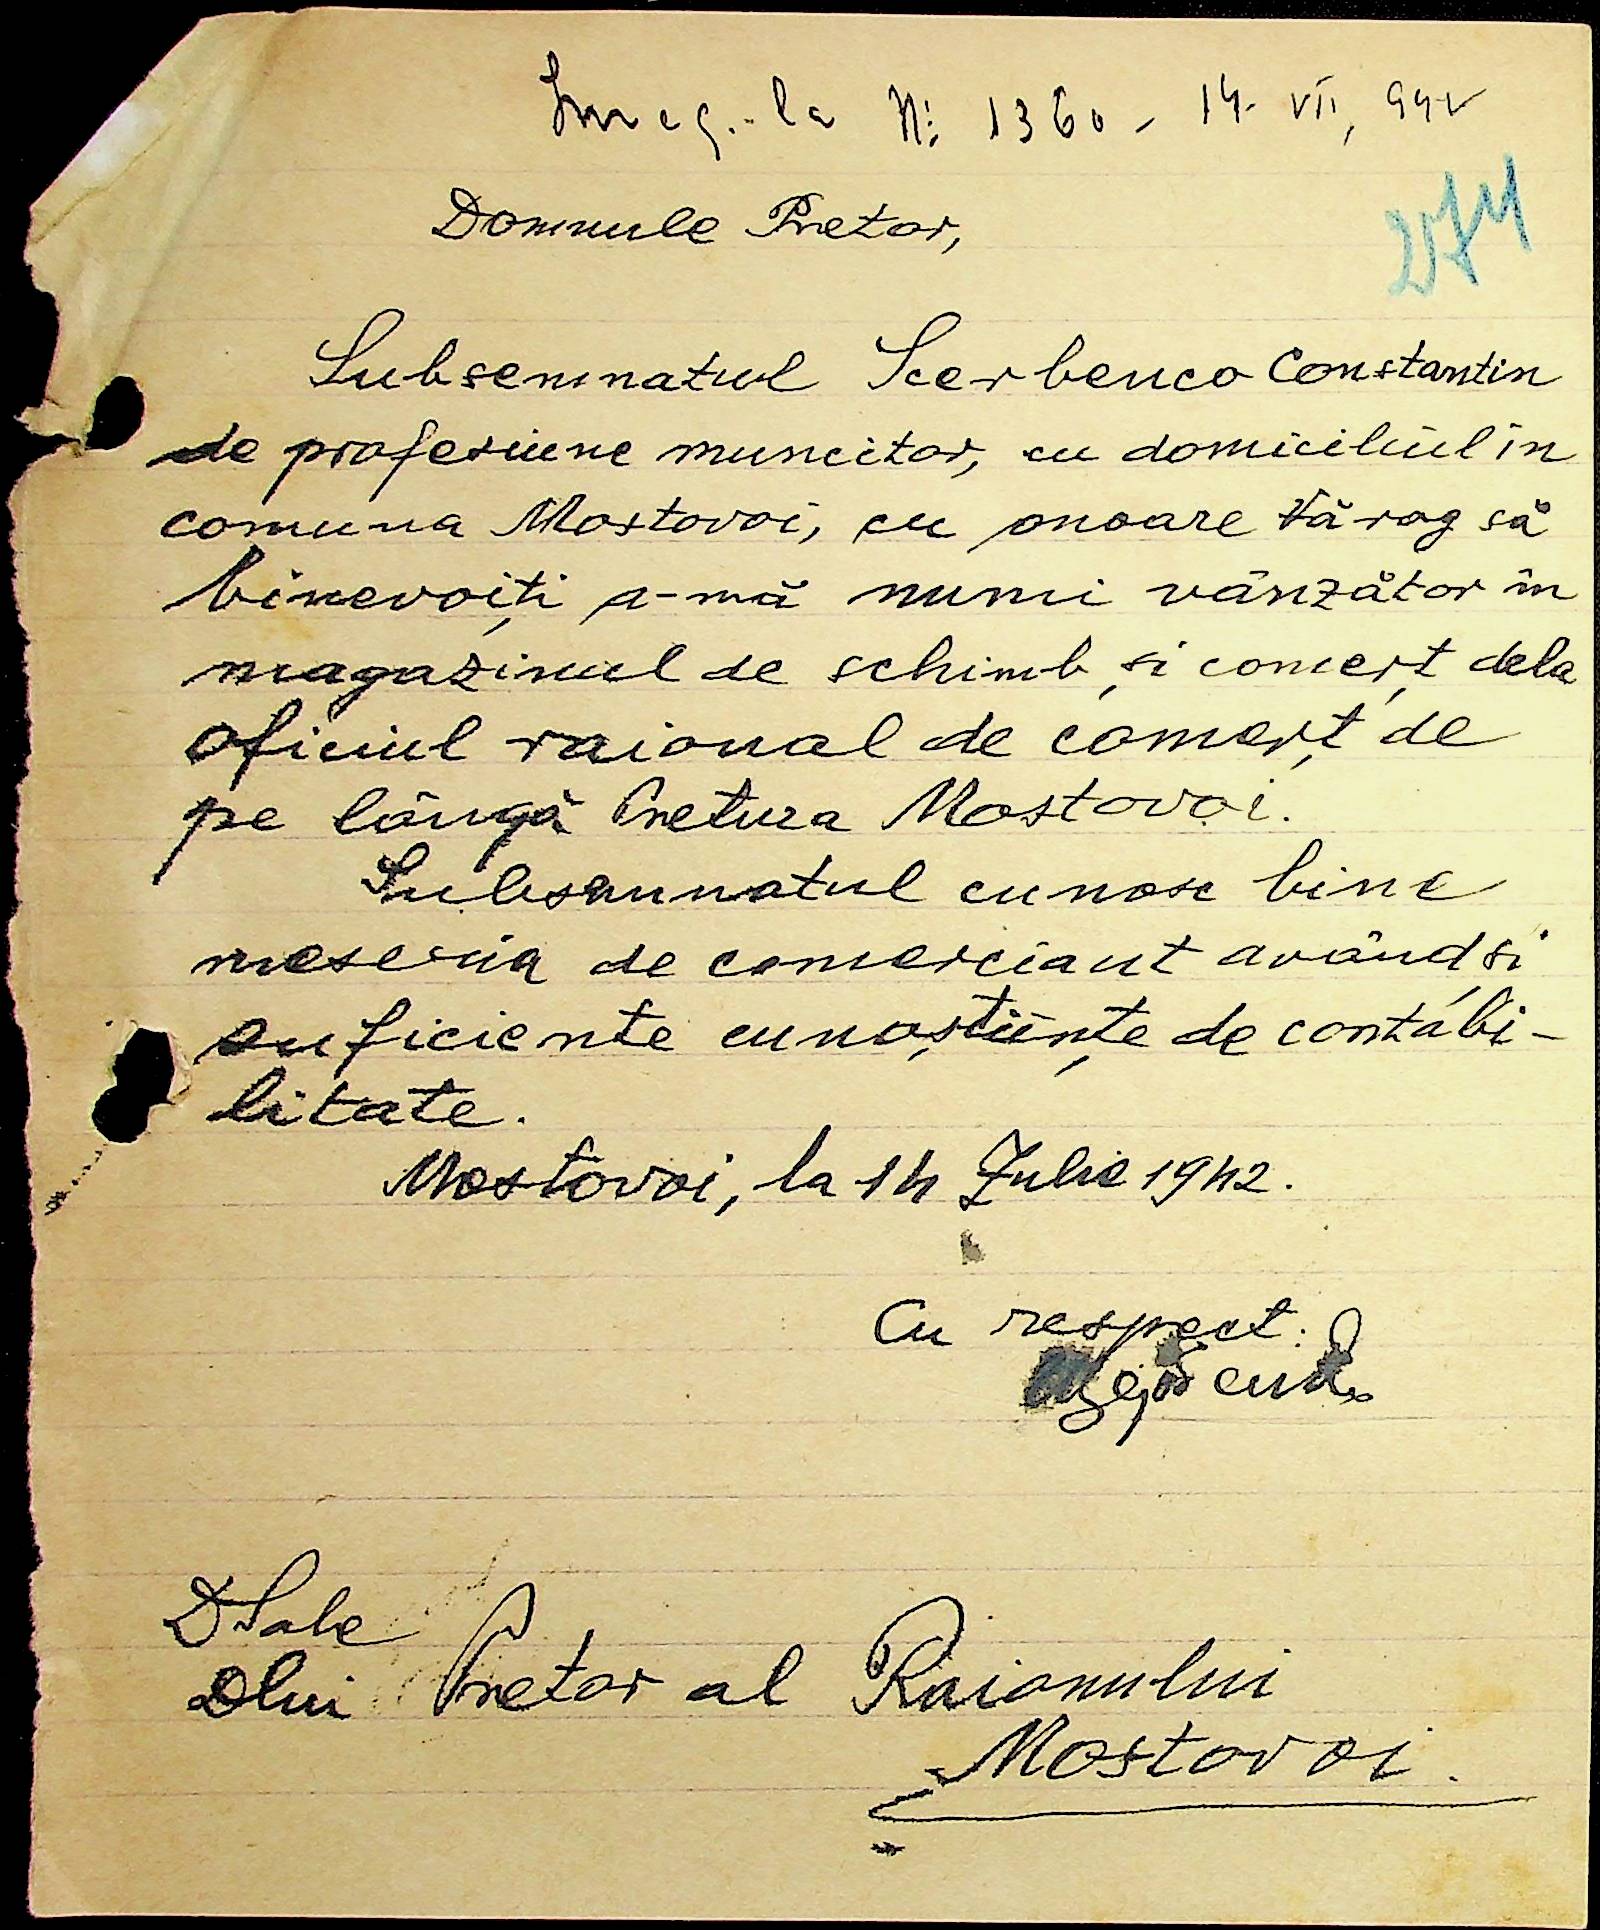 Înreg. la N: 1360 - 14. VII, 942
274
Domnule Pretor,
Subsemnatul Scerbenco Constantin
de profesiune muncitor, cu domiciliul în
comuna Mostovoi, cu onoare Vă rog să
binevoiți a-mă numi vânzător în
magazinul de schimb și comerț dela
oficiul raional de comerț de
pe lângă Pretura Mostovoi.
Subsemnatul cunosc bine
meseria de comerciant având și
suficiente cunoștiințe de contabi-
litate.
Mostovoi, la 14 Iulie 1942.
Cu respect:
DSale
Dlui Pretor al Raionului
Mostovoi.